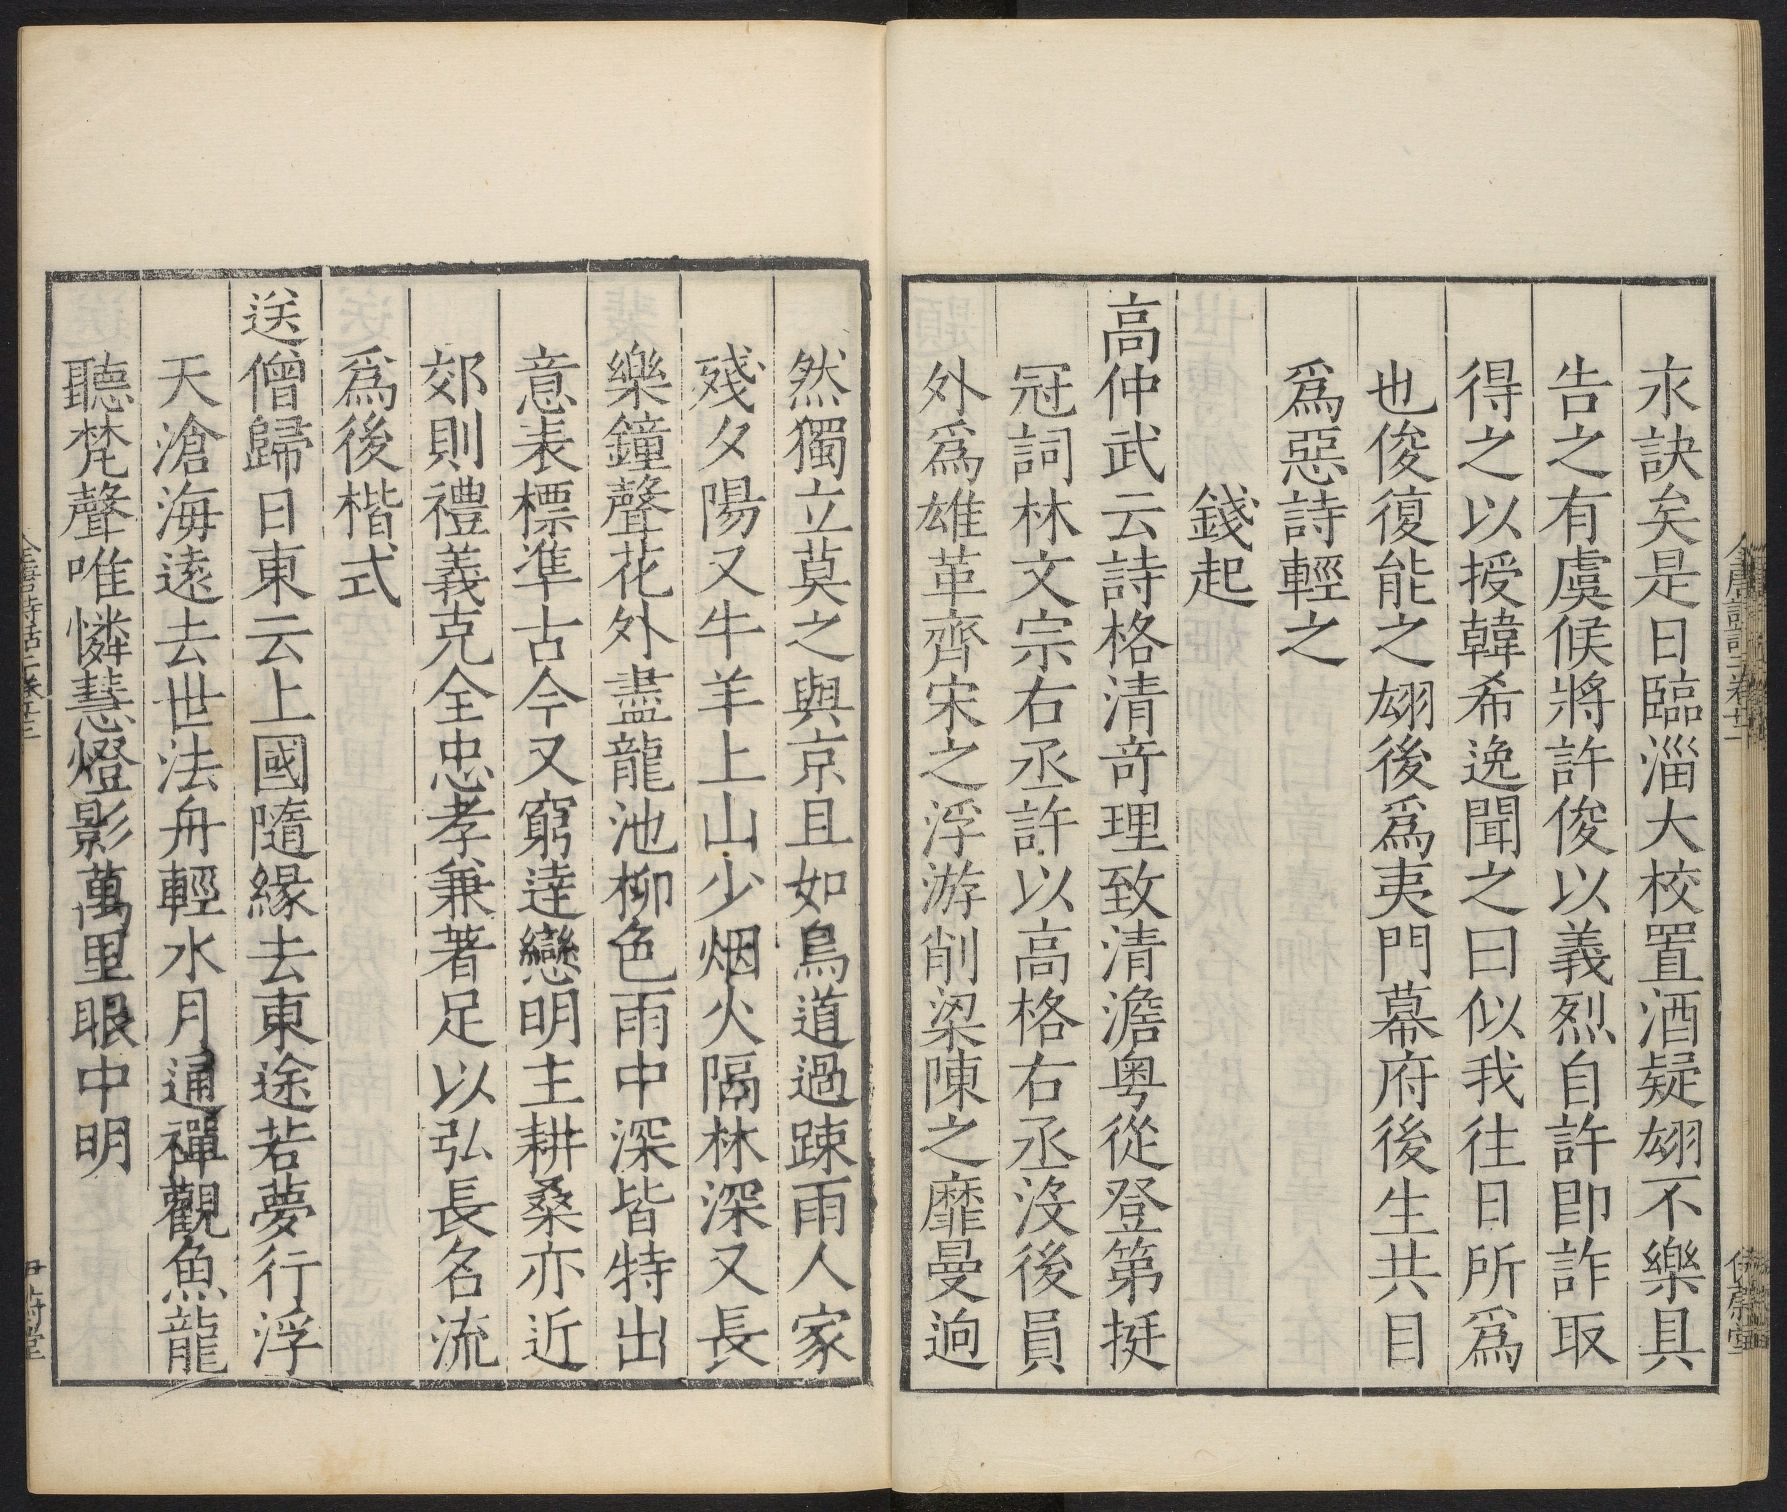 永訣矣是日臨淄大校置酒疑翃不樂具
告之有虞候將許俊以義烈自許即詐取
得之以授韓希逸聞之曰似我往日所爲
也俊復能之翃後爲夷門幕府後生共目
爲惡詩輕之
錢起
高仲武云詩格清奇理致清澹粤從登第挺
冠詞林文宗右丞許以高格右丞没後員
外爲雄革齊宋之浮游削梁陳之靡曼迥
然獨立莫之與京且如鳥道過踈雨人家
殘夕陽又牛羊上山少烟火隔林深又長
樂鐘聲花外盡龍池柳色雨中深皆特出
意表標準古今又窮達戀明主耕桑亦近
郊則禮義克全忠孝兼著足以弘長名流
爲後楷式
送僧歸日東云上國隨緣去東途若夢行浮
天滄海遠去世法舟輕水月通禪觀魚龍
聽梵聲唯憐慧燈影萬里眼中明